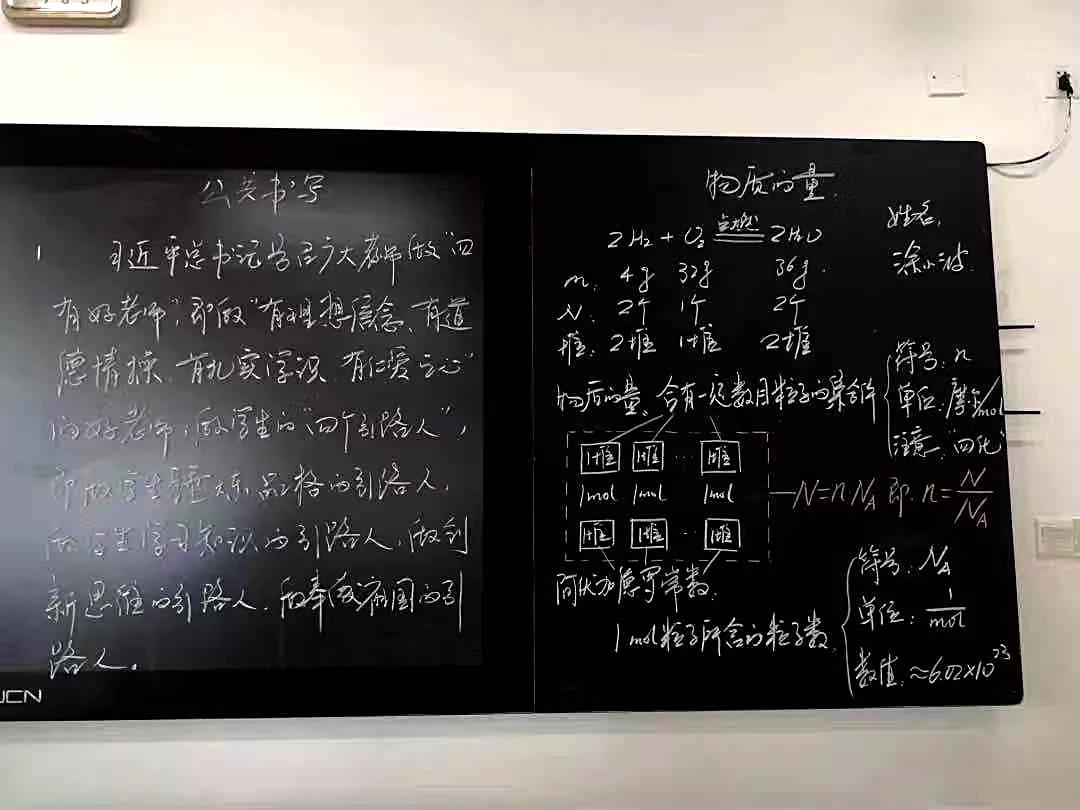 公共书写
习近平总书记号召广大老师做"四
有好老师",即做"有理想信念、有道
德情操、有扎实学识、有仁爱之心"
的好老师;做学生的"四个引路人",
即做学生锤炼品格的引路人,
做学生学习知识的引路人,做创
新思维的引路人,做奉献祖国的引
路人。
JCN
物质的量
姓名:
涂小波
2H₂ + O₂ 点燃 2H₂O
m: 4g 32g 36g
N: 2个 1个 2个
堆: 2堆 1堆 2堆
物质的量:含有一定数目粒子的集合体
符号:n
单位:摩尔/mol
注意:"四化"
1堆 1堆 … 1堆
1mol 1mol 1mol
1堆 1堆 … 1堆
N=nNA 即:n=N/NA
阿伏加德罗常数:
1mol粒子所含的粒子数
符号:NA
单位:1/mol
数值:≈6.02×10²³